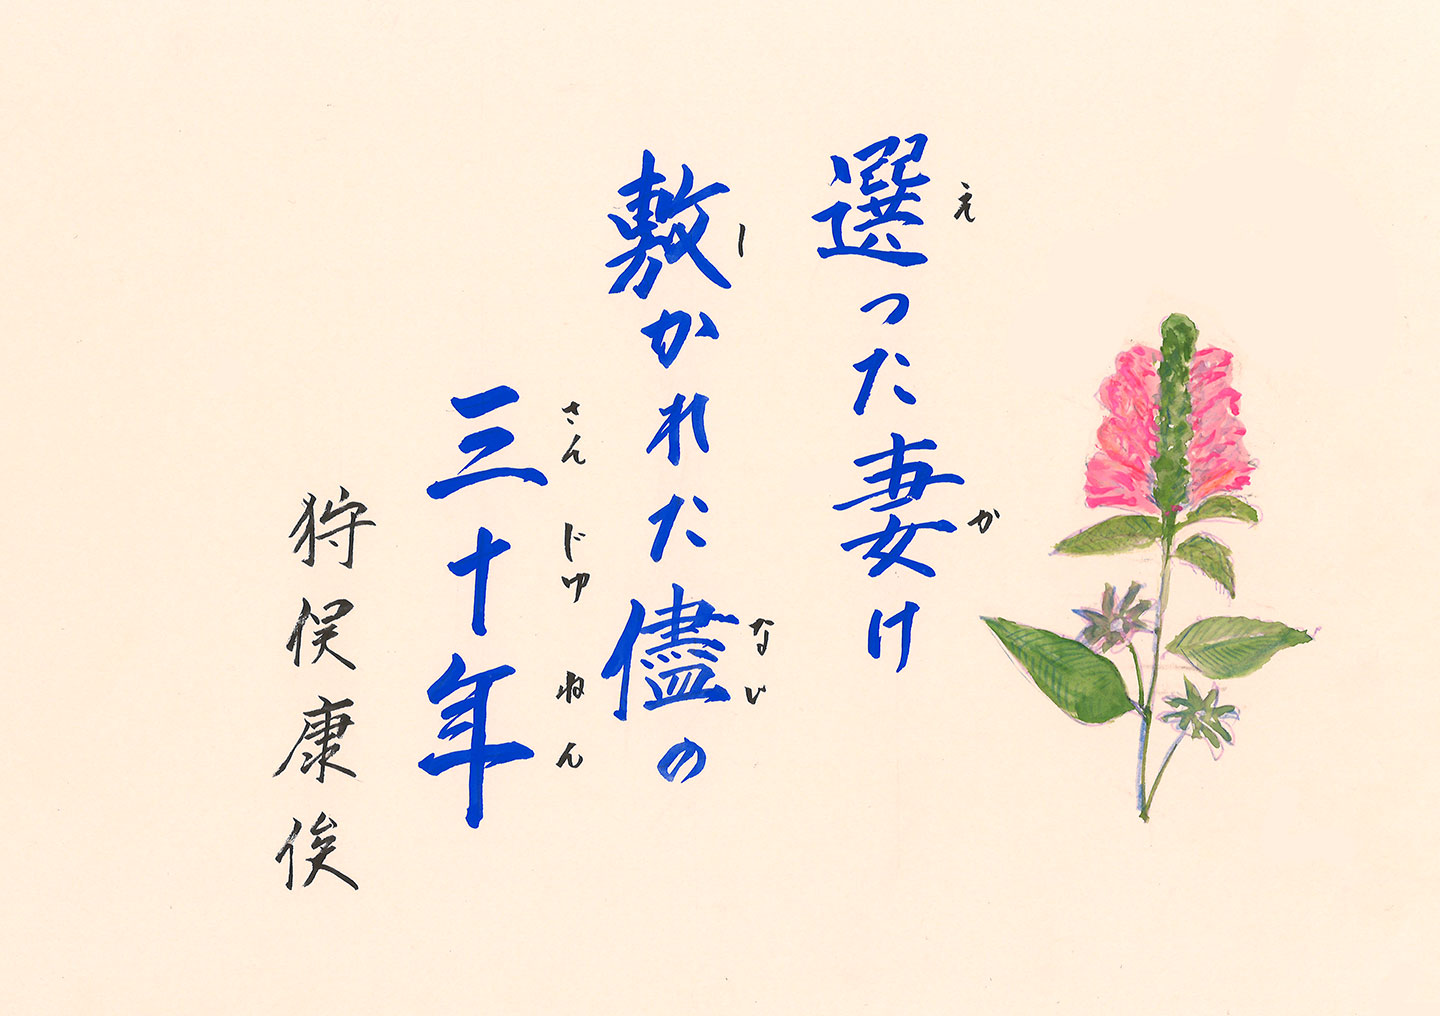 選った妻け
え
か
敷かれた儘の
し
ない
三十年
さんじゅねん
狩俣康俊